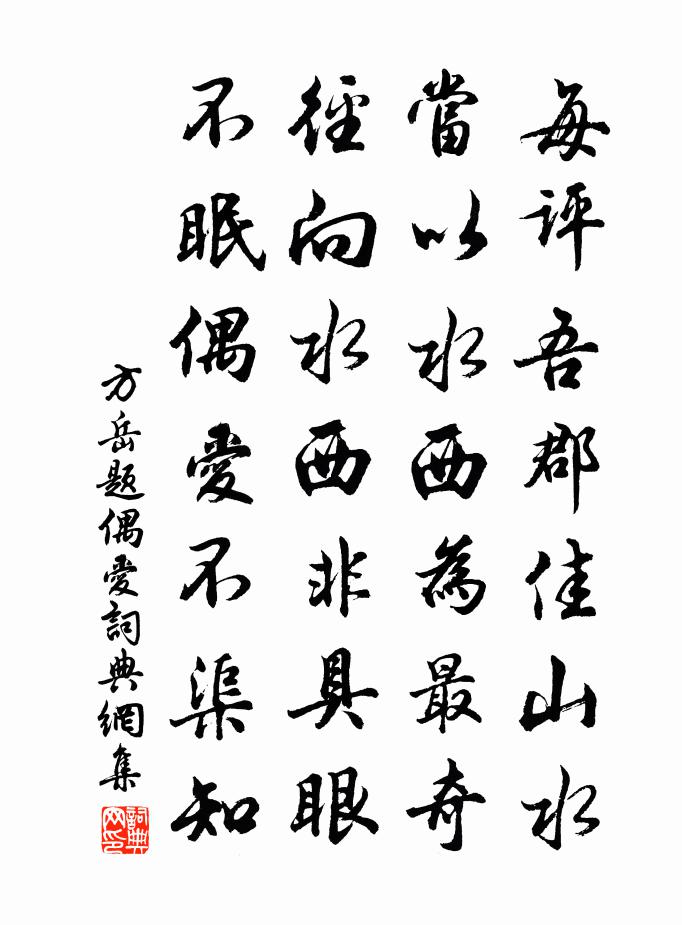 每評吾郡佳山水
當以水西為最奇
徑向水西非具眼
不眠偶愛不渠知
方岳題偶愛詞典網集
詞典網印